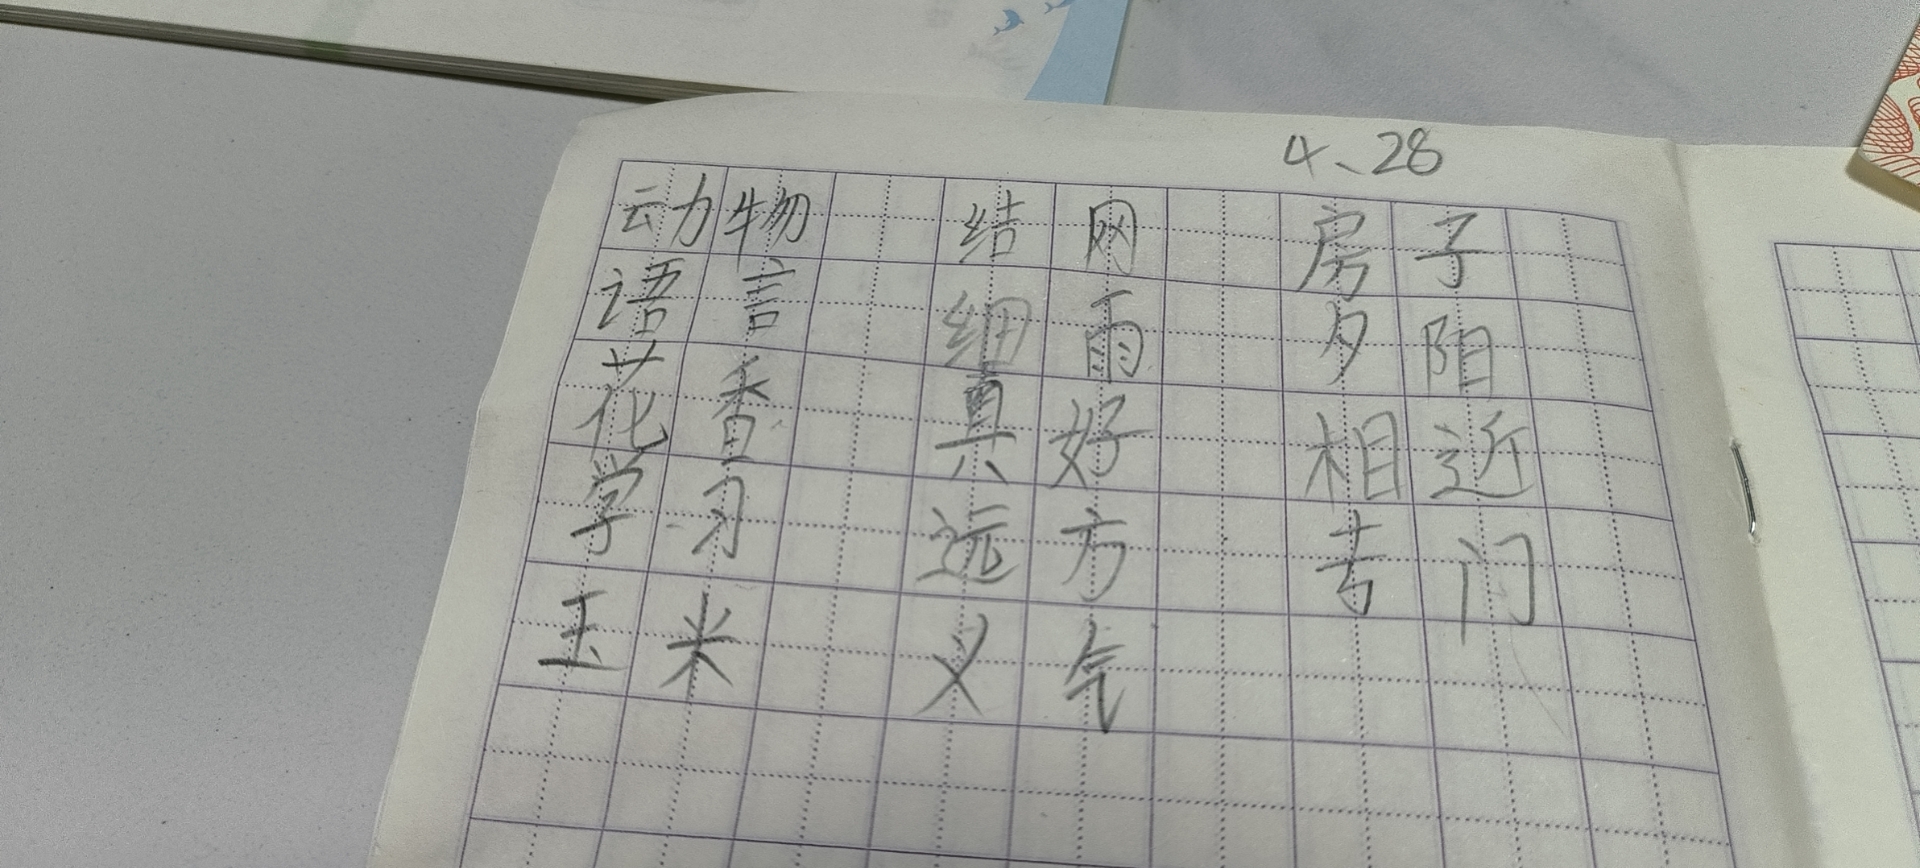 4、28
动物 结网 房子
语言 细雨 夕阳
花香 真好 相近
学习 远方 去门
玉米 义气